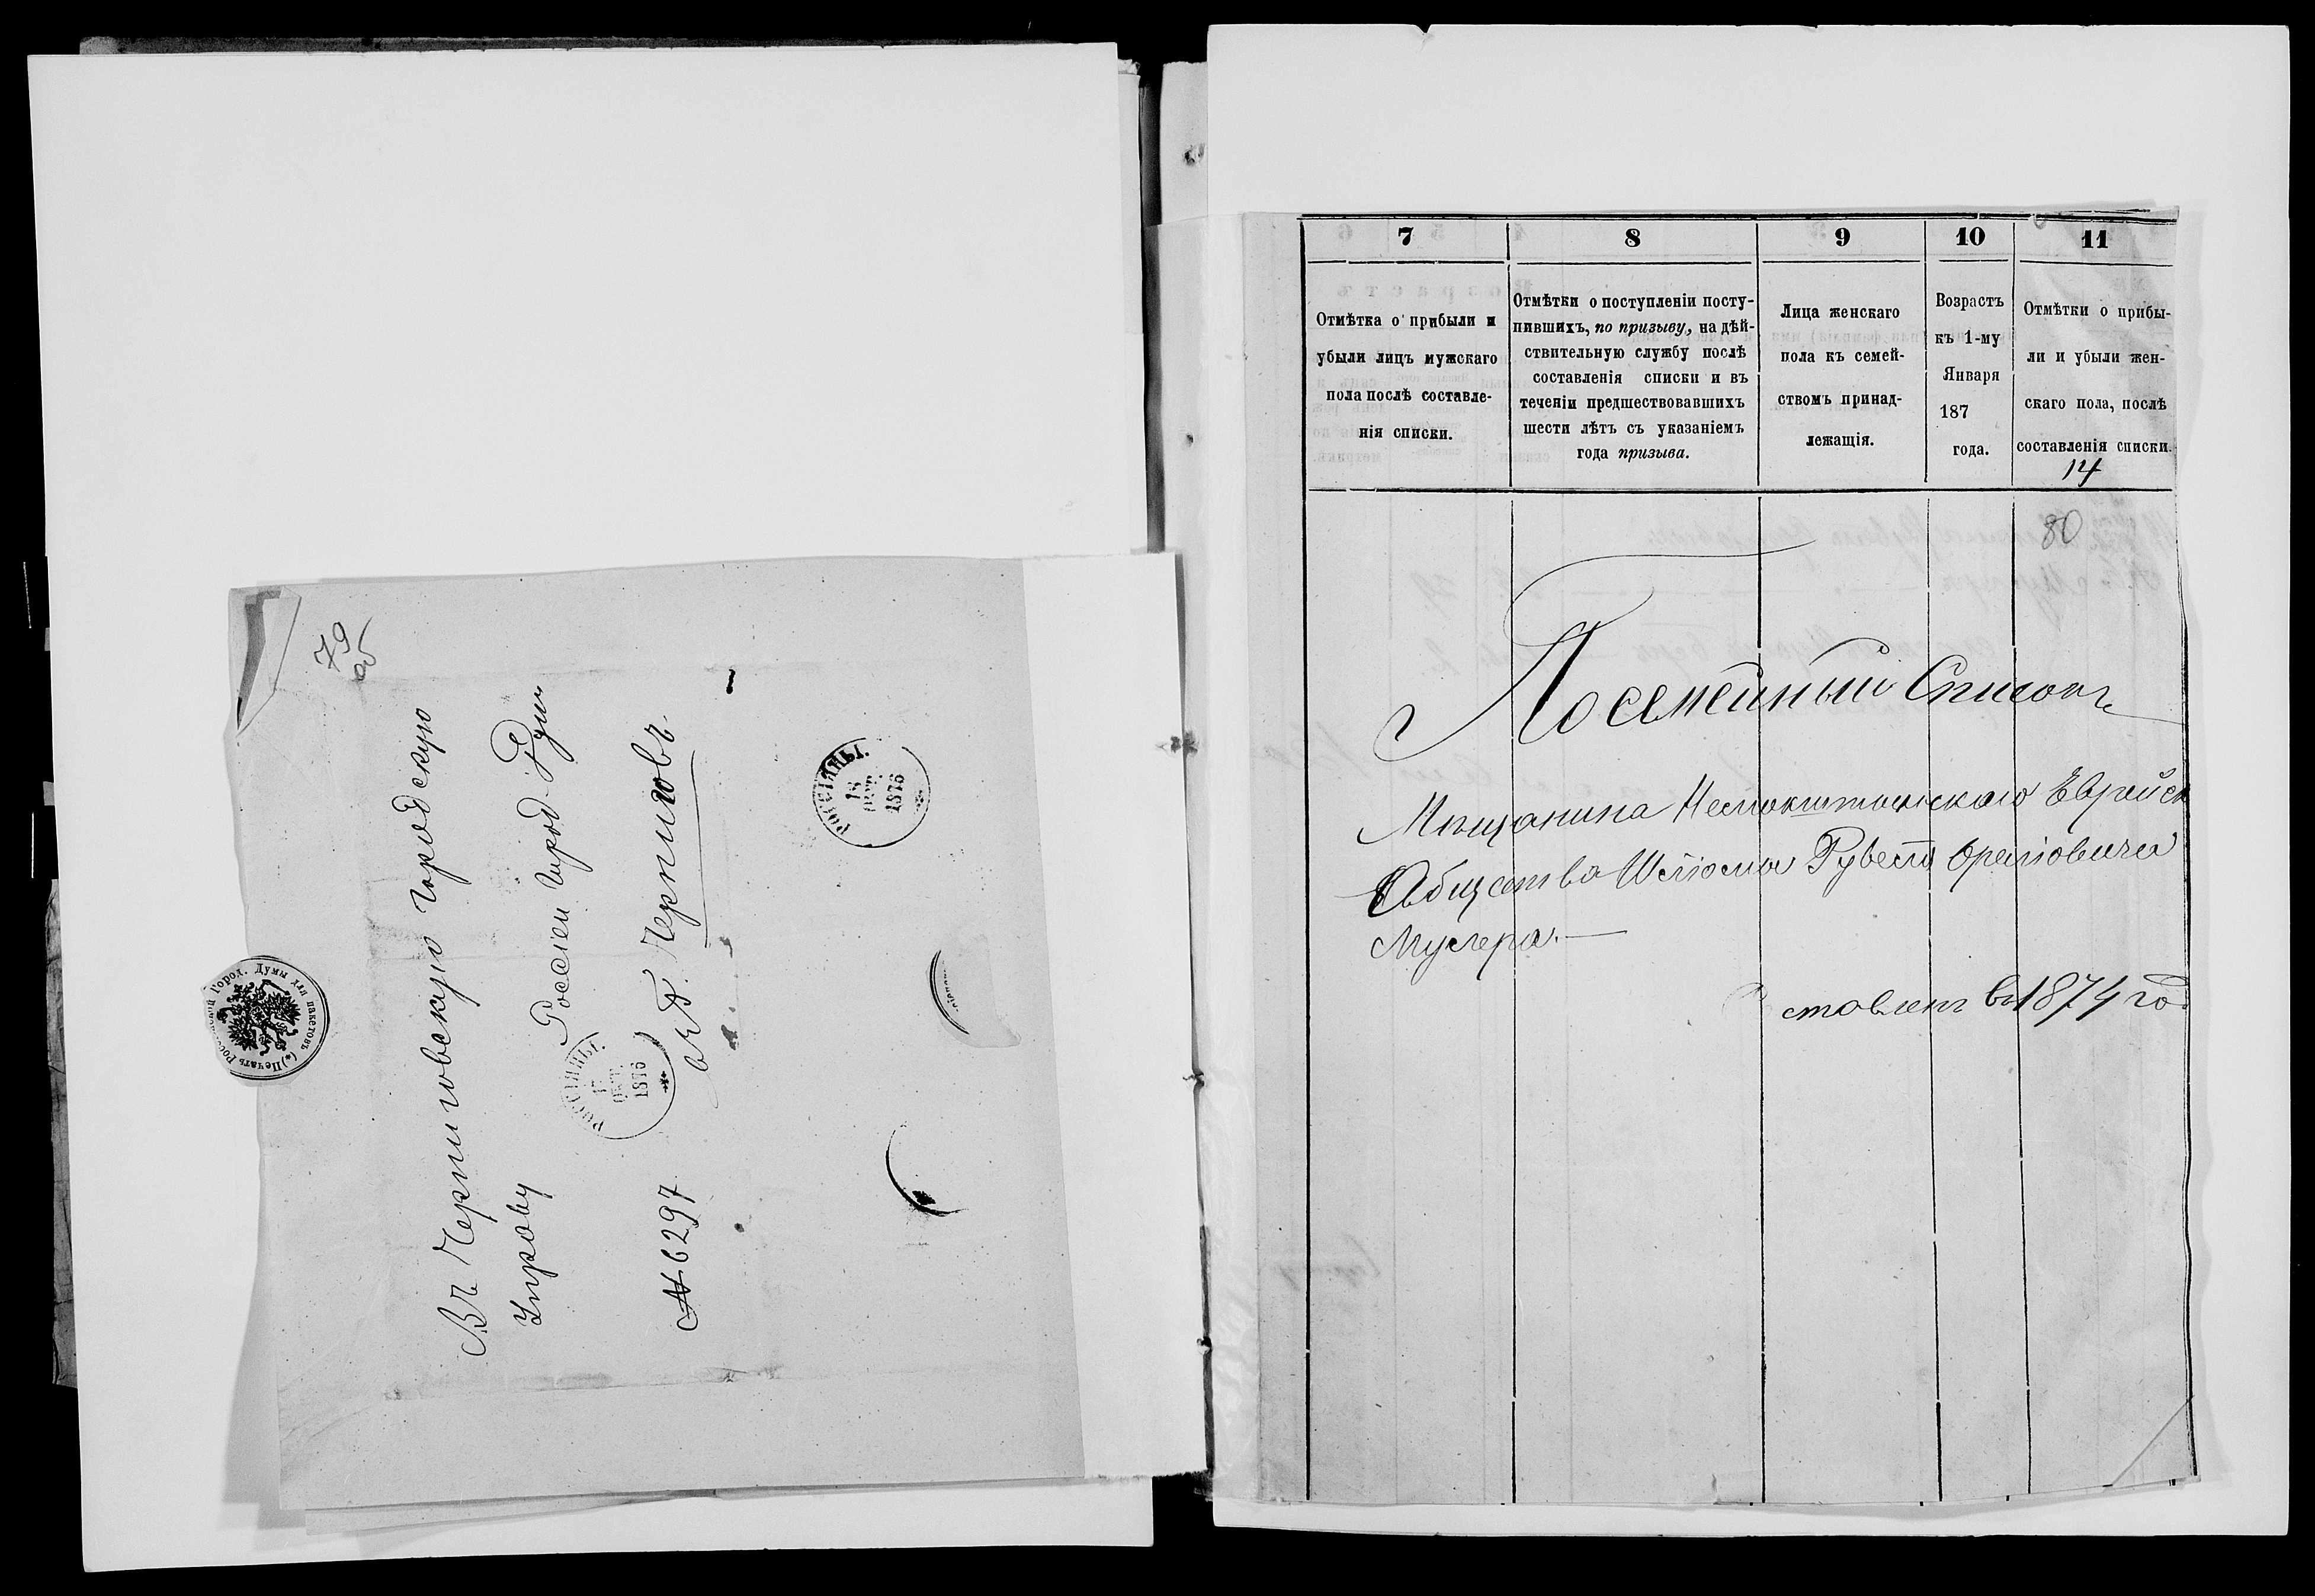 79
об
Въ Черниговскую Городскую
Управу
Россіен. Город. Дум.
№ 6297
въ г. Черниговъ
РОССІЕНЫ.
17
ОКТ.
1876
РОССІЕНЫ.
18
ОКТ.
1876
Город. Думы для пакетовъ (*) Печать
7
8
9
10
11
Отмѣтка о прибыли и
убыли лицъ мужскаго
пола послѣ составле-
нія списки.
Отмѣтки о поступленіи посту-
пившихъ, по призыву, на дѣй-
ствительную службу послѣ
составленія списки и въ
теченіи предшествовавшихъ
шести лѣтъ съ указаніемъ
года призыва.
Лица женскаго
пола къ семей-
ствомъ принад-
лежащія.
Возрастъ
къ 1-му
Января
187
года.
Отмѣтки о прибы-
ли и убыли жен-
скаго пола, послѣ
составленія списки.
14
80
Посемейный Списокъ
Мѣщанина Немокштанскаго Еврейск
Общества Шліома Рувеля
Муслера.—
ставленъ въ 1874 год